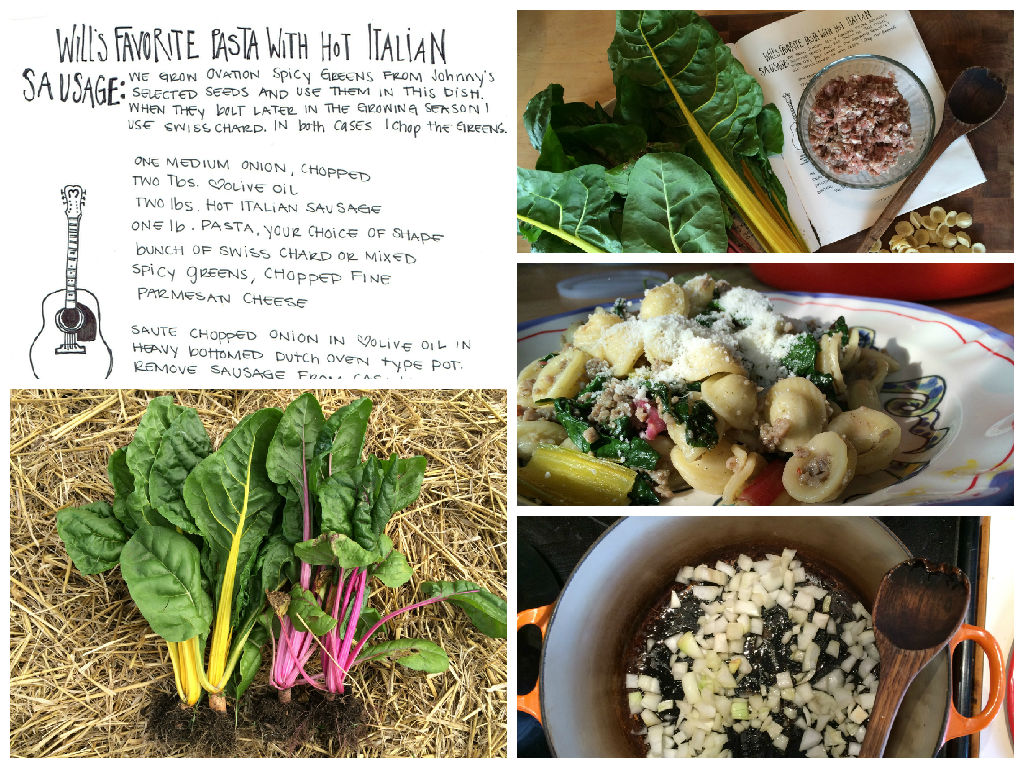 WILL'S FAVORITE PASTA WITH HOT ITALIAN
SAUSAGE: WE GROW OVATION SPICY GREENS FROM Johnny's
SELECTED SEEDS AND USE THEM IN THIS DISH.
WHEN THEY bolt LATER IN THE GROWING SEASON I
USE SWISS CHARD. IN both CASES I Chop the GREENS.
ONE MEDIUM ONION, CHOPPED
TWO Tbs. ♡OLIVE OIL
TWO lbs. HOT ITALIAN SAUSAGE
ONE lb. PASTA, YOUR CHOICE OF SHAPE
BUNCH OF SWISS CHARD OR MIXED
SPICY GREENS, CHOPPED FINE
PARMESAN CHEESE
SAUTE CHOPPED ONION IN ♡OLIVE OIL IN
HEAVY bottomED DUTCH OVEN TYPE POT.
REMOVE SAUSAGE FROM
WILL'S FAVORITE PASTA WITH HOT ITALIAN
SAUSAGE: